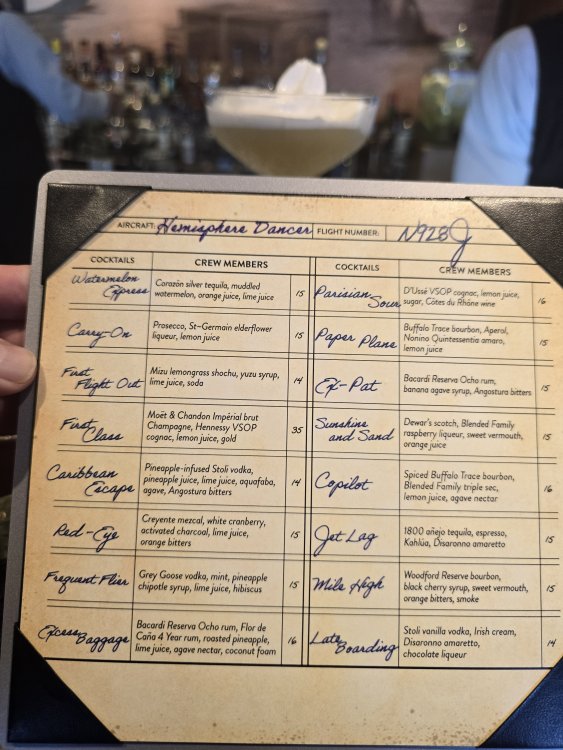 AIRCRAFT: Hemisphere Dancer FLIGHT NUMBER: N928J
COCKTAILS CREW MEMBERS
Watermelon
Express
Corazón silver tequila, muddled
watermelon, orange juice, lime juice
15
Carry-On
Prosecco, St-Germain elderflower
liqueur, lemon juice
15
First
Flight Out
Mizu lemongrass shochu, yuzu syrup,
lime juice, soda
14
First
Class
Moët & Chandon Impérial brut
Champagne, Hennessy VSOP
cognac, lemon juice, gold
35
Caribbean
Escape
Pineapple-infused Stoli vodka,
pineapple juice, lime juice, aquafaba,
agave, Angostura bitters
14
Red-Eye
Creyente mezcal, white cranberry,
activated charcoal, lime juice,
orange bitters
15
Frequent Flier
Grey Goose vodka, mint, pineapple
chipotle syrup, lime juice, hibiscus
15
Excess
Baggage
Bacardi Reserva Ocho rum, Flor de
Caña 4 Year rum, roasted pineapple,
lime juice, agave nectar, coconut foam
16
COCKTAILS CREW MEMBERS
Parisian
Sour
D'Ussé VSOP cognac, lemon juice,
sugar, Côtes du Rhône wine
16
Paper Plane
Buffalo Trace bourbon, Aperol,
Nonino Quintessentia amaro,
lemon juice
15
Ex-Pat
Bacardi Reserva Ocho rum,
banana agave syrup, Angostura bitters
15
Sunshine
and Sand
Dewar's scotch, Blended Family
raspberry liqueur, sweet vermouth,
orange juice
15
Copilot
Spiced Buffalo Trace bourbon,
Blended Family triple sec,
lemon juice, agave nectar
16
Jet Lag
1800 añejo tequila, espresso,
Kahlúa, Disaronno amaretto
15
Mile High
Woodford Reserve bourbon,
black cherry syrup, sweet vermouth,
orange bitters, smoke
15
Late
Boarding
Stoli vanilla vodka, Irish cream,
Disaronno amaretto,
chocolate liqueur
14